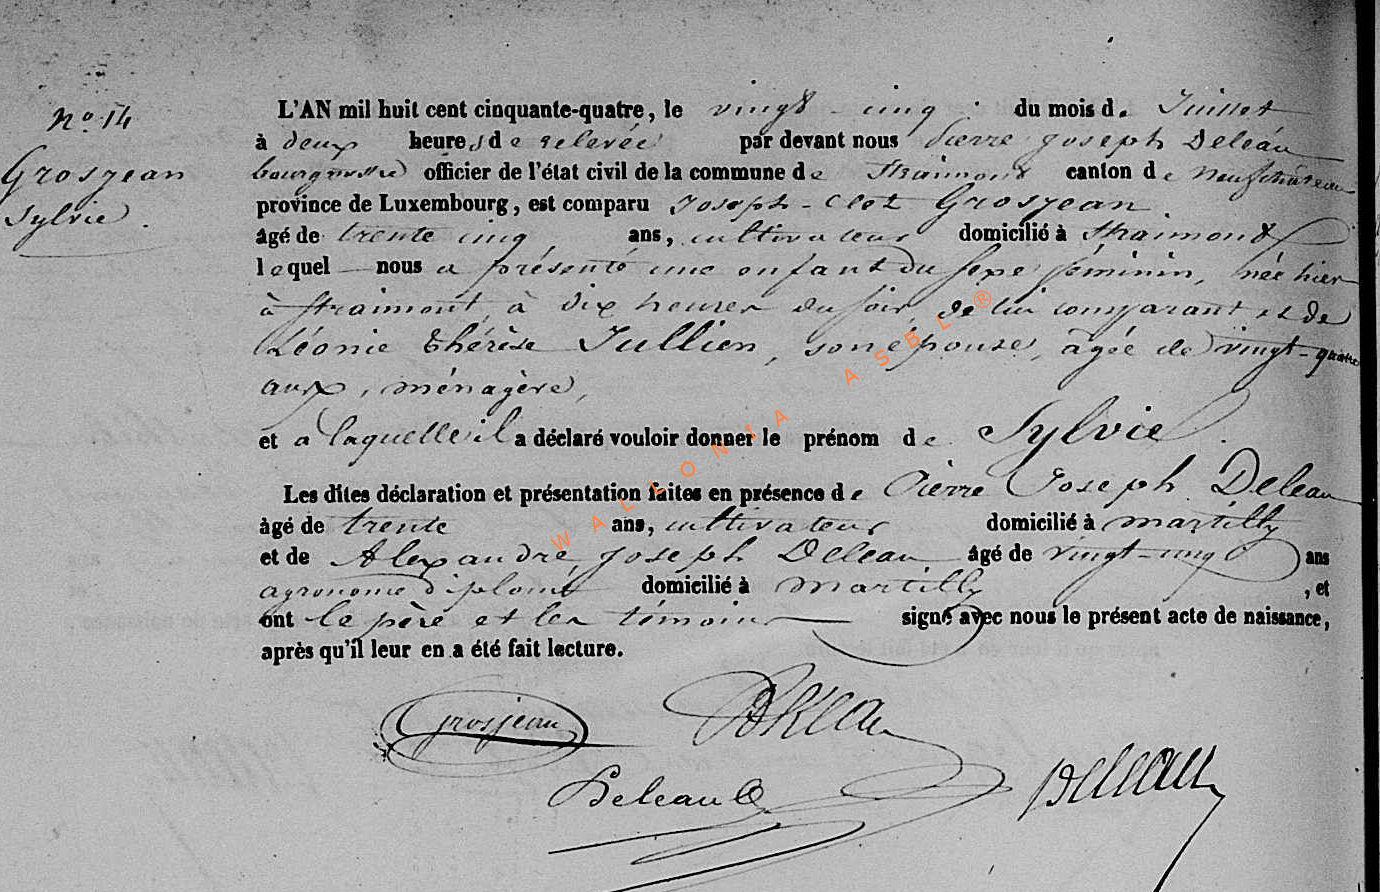 No. 14
Grosjean
Sylvie.
L'AN mil huit cent cinquante-quatre, le vingt-cinq. du mois de Juillet
à deux heures de relevée par devant nous Pierre Joseph Deleau
bourgmestre officier de l'état civil de la commune de Straimont canton de neufchâteau
province de Luxembourg, est comparu Joseph-Clot Grosjean.
âgé de trente cinq, ans, cultivateur domicilié à Straimont
lequel nous a présenté une enfant du sexe féminin, née hier
à Straimont, à dix heures du soir, de lui comparant et de
Léonie Thérèse Jullien, son épouse, âgée de vingt-quatre
ans, ménagère,
et a laquelle il a déclaré vouloir donner le prénom de Sylvie.
Les dites déclaration et présentation faites en présence de Pierre Joseph Deleau
âgé de trente ans, cultivateur domicilié à martilly
et de Alexandre, Joseph Deleau âgé de vingt-cinq ans
agronome diplomé domicilié à martilly, et
ont le père et les témoins signé avec nous le présent acte de naissance,
après qu'il leur en a été fait lecture.
Grosjean Deleau
Deleau Deleau
WALLONIA ASBL ®